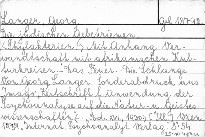 Langer, Georg
Die jüdischen Gebetriemen
(Phylakterien); Mit Anhang Ver-
wandtschaft mit afrikanischen Kul-
turkreisen - Das Feuer - Die Schlange
Von Georg Langer. Sonderabdruck aus
"Imago", Zeitschrift f. Anwendung der
Psychoanalyse auf die Natur- u. Geistes-
wissenschaften, Bd. XVI, 1930, Wien
1931, Internat. Psychoanalyt. Verlag